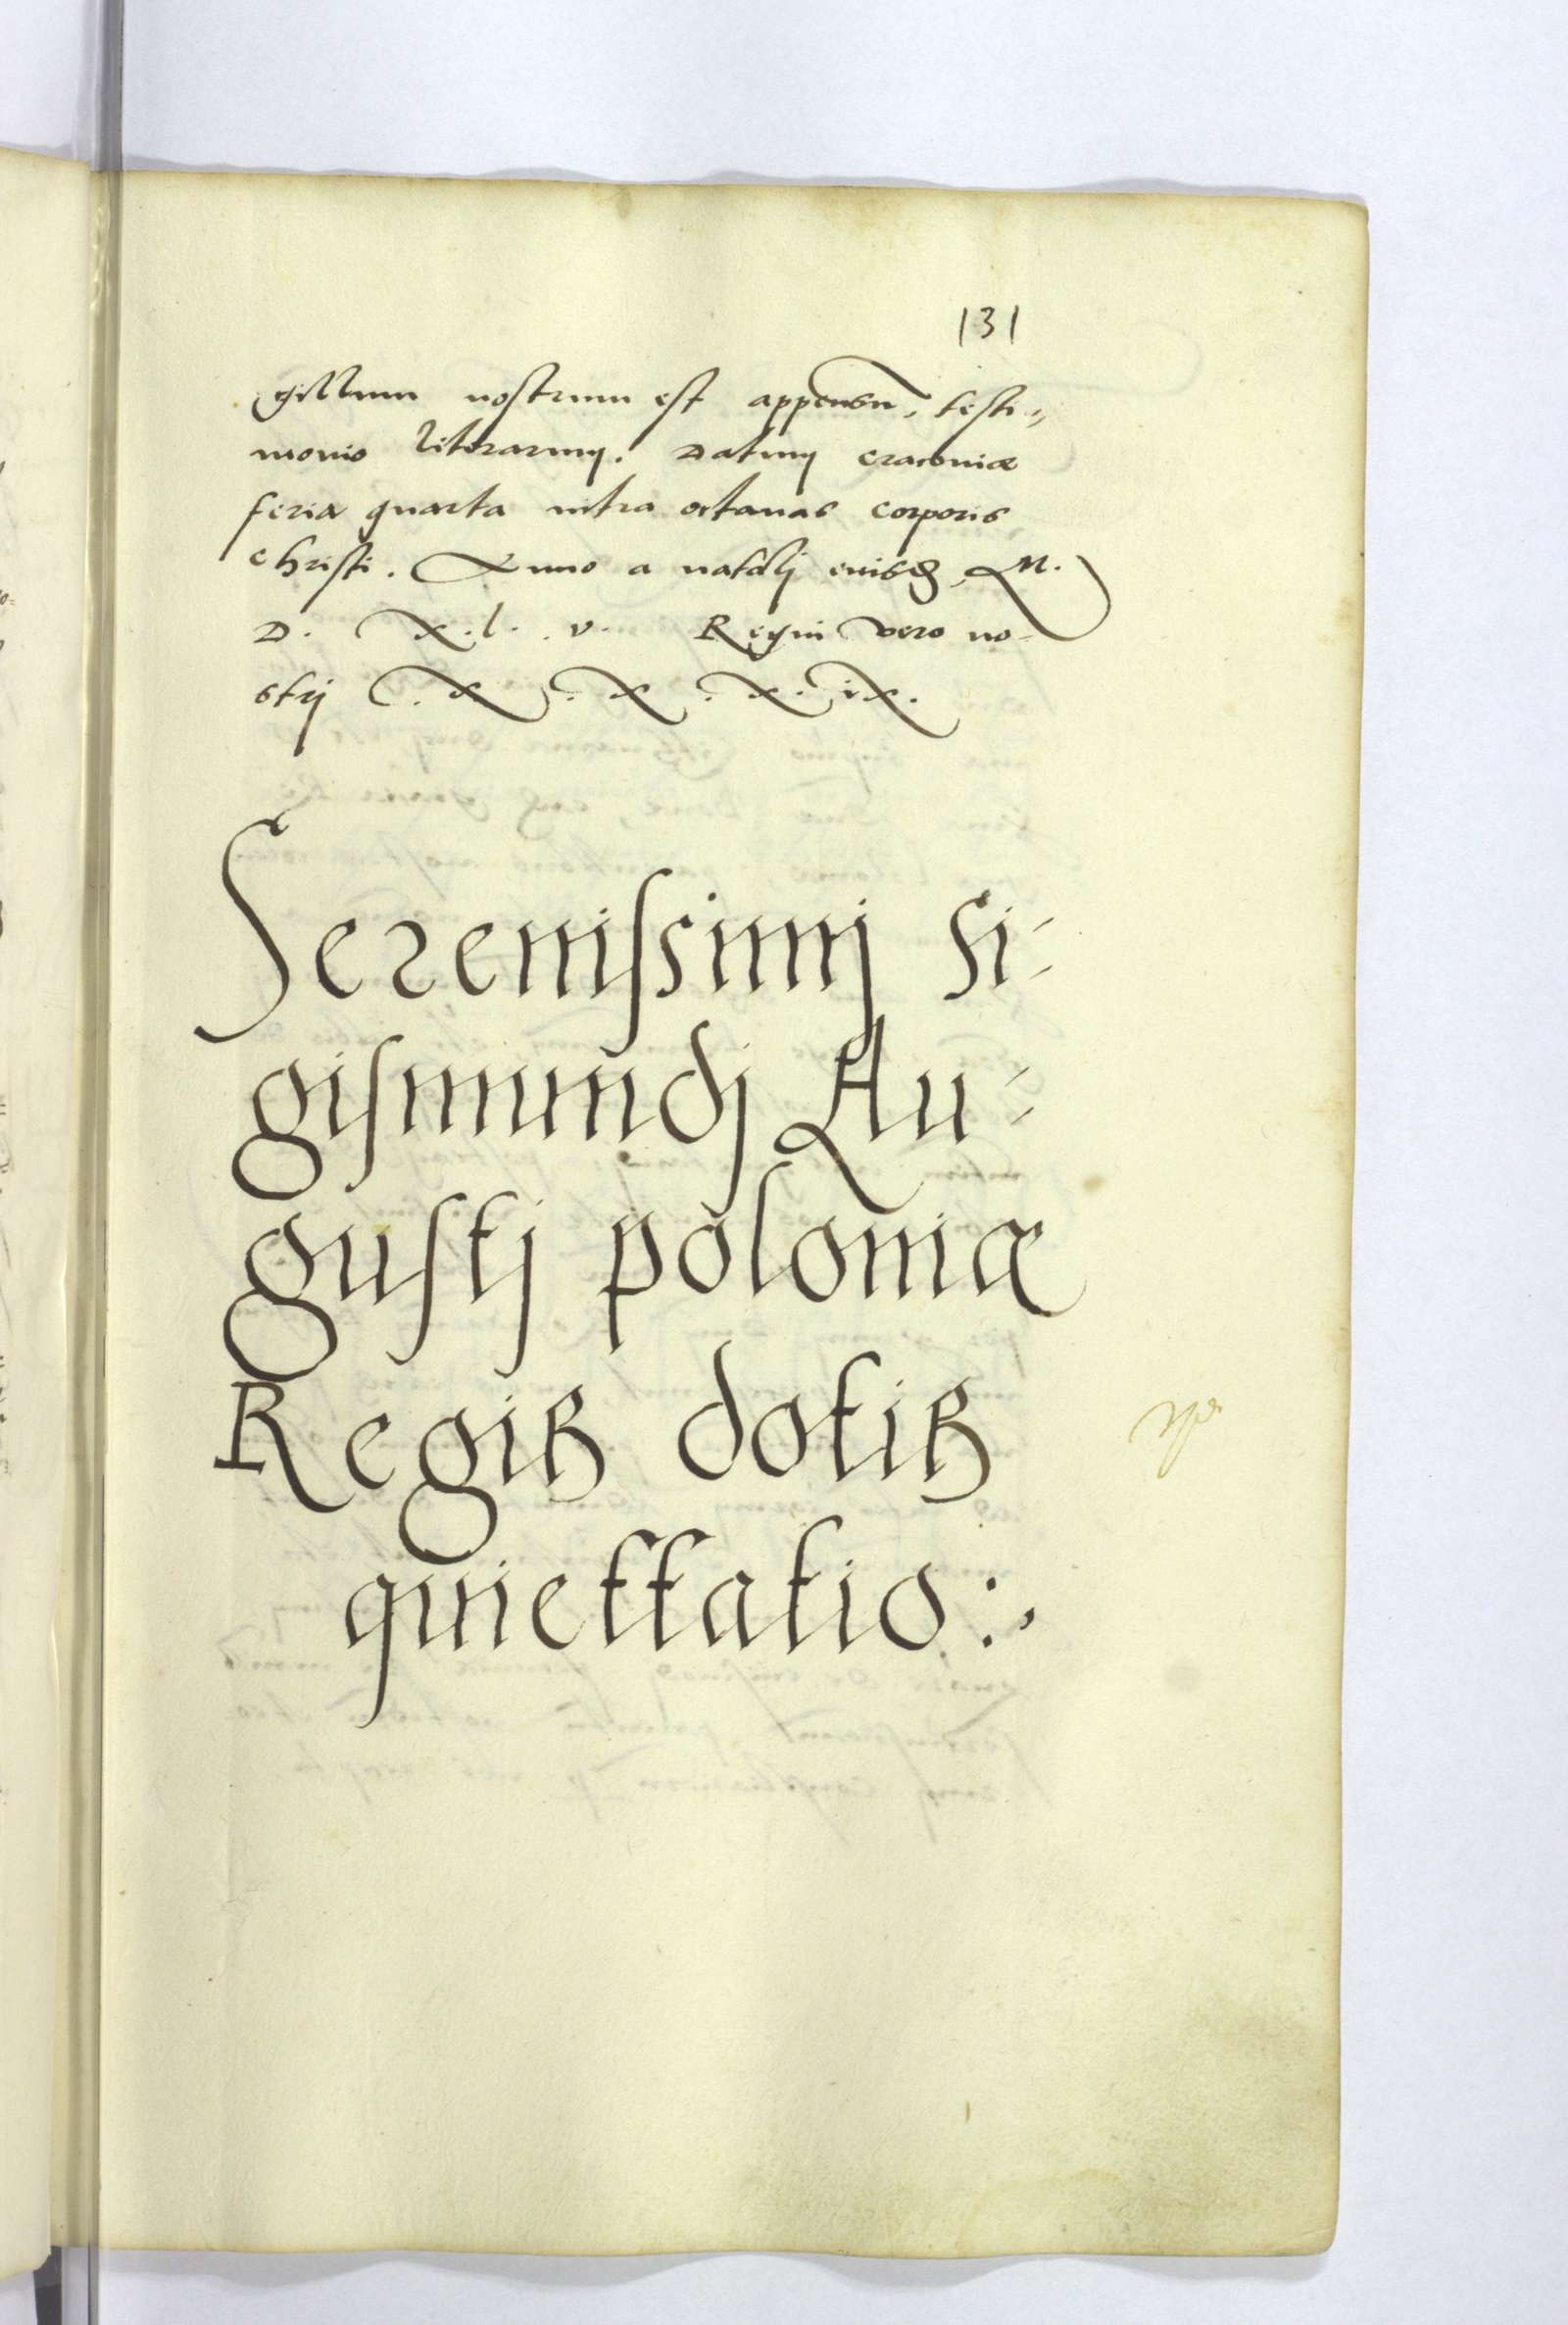 131
gillum nostrum est appensu̅, testi=
monio literarum. Datum cracoviæ
feria quarta intra octavas corporis
christi. Anno a natalj eiusdē, M.
D. X. l. v. Regni vero no-
strj . X . X . X . ix.
Serenissimj Si=
gismundj Au=
gustj poloniæ
Regis dotis
quiettatio:,